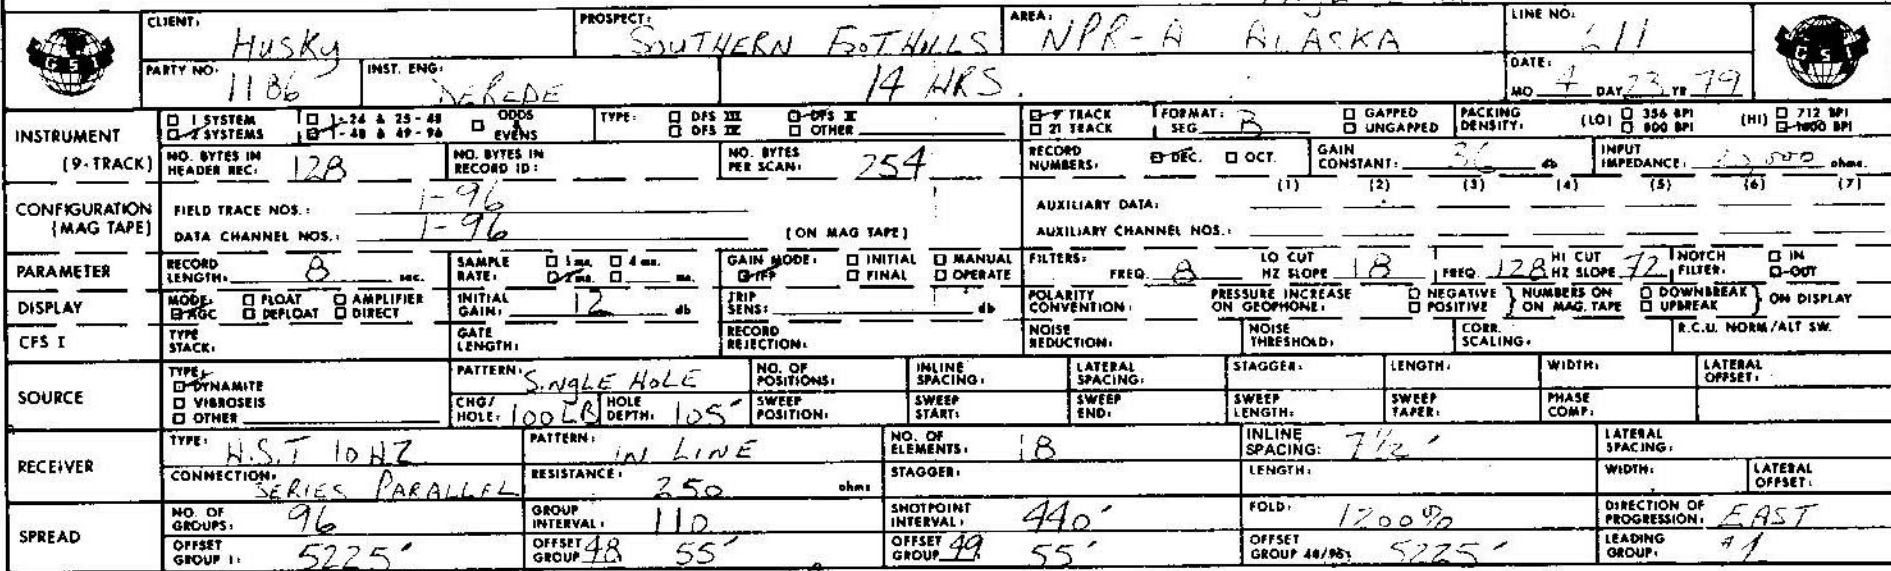 CLIENT: Husky PROSPECT: SOUTHERN FOTHILLS AREA: NPR-A ALASKA LINE NO: 611
GSI PARTY NO: 1186 INST. ENG: DEREDE 14 HRS. DATE: MO 4 DAY 23 YR 79 GSI
INSTRUMENT (9-TRACK) 1 SYSTEM 2 SYSTEMS 1-24 & 25-48 1-48 & 49-96 ODDS EVENS TYPE: DFS III DFS IV DFS V OTHER 9 TRACK 21 TRACK FORMAT: SEG B GAPPED UNGAPPED PACKING DENSITY: (LO) 356 BPI 800 BPI (HI) 712 BPI 1600 BPI
NO. BYTES IN HEADER REC: 128 NO. BYTES IN RECORD ID: NO. BYTES PER SCAN: 254 RECORD NUMBERS: DEC. OCT. GAIN CONSTANT: 36 db INPUT IMPEDANCE: ohms.
CONFIGURATION (MAG TAPE) FIELD TRACE NOS.: 1-96 AUXILIARY DATA: (1) (2) (3) (4) (5) (6) (7)
DATA CHANNEL NOS.: 1-96 (ON MAG TAPE) AUXILIARY CHANNEL NOS.:
PARAMETER RECORD LENGTH: 8 sec. SAMPLE RATE: 1 ms. 4 ms. 2 ms. ms. GAIN MODE: INITIAL MANUAL IFP FINAL OPERATE FILTERS: FREQ. 8 LO CUT HZ SLOPE 18 FREQ. 128 HI CUT HZ SLOPE 72 NOTCH FILTER: IN OUT
DISPLAY MODE: FLOAT AMPLIFIER AGC DEFLOAT DIRECT INITIAL GAIN: 12 db TRIP SENS: db POLARITY CONVENTION: PRESSURE INCREASE ON GEOPHONE: NEGATIVE POSITIVE NUMBERS ON MAG. TAPE DOWNBREAK UPBREAK ON DISPLAY
CFS I TYPE STACK: GATE LENGTH: RECORD REJECTION: NOISE REDUCTION: NOISE THRESHOLD: CORR. SCALING: R.C.U. NORM/ALT SW.
SOURCE TYPE: DYNAMITE VIBROSEIS OTHER PATTERN: SINGLE HOLE NO. OF POSITIONS: INLINE SPACING: LATERAL SPACING: STAGGER: LENGTH: WIDTH: LATERAL OFFSET:
CHG/HOLE: 100 LB HOLE DEPTH: 105' SWEEP POSITION: SWEEP START: SWEEP END: SWEEP LENGTH: SWEEP TAPER: PHASE COMP:
RECEIVER TYPE: H.S.T 10 HZ PATTERN: IN LINE NO. OF ELEMENTS: 18 INLINE SPACING: 7 1/2' LATERAL SPACING:
CONNECTION: SERIES PARALLEL RESISTANCE: 250 ohms STAGGER: LENGTH: WIDTH: LATERAL OFFSET:
SPREAD NO. OF GROUPS: 96 GROUP INTERVAL: 110 SHOTPOINT INTERVAL: 440' FOLD: 1200% DIRECTION OF PROGRESSION: EAST
OFFSET GROUP 1: 5225' OFFSET GROUP 48 55' OFFSET GROUP 49 55' OFFSET GROUP 48/96: 5225' LEADING GROUP: #1